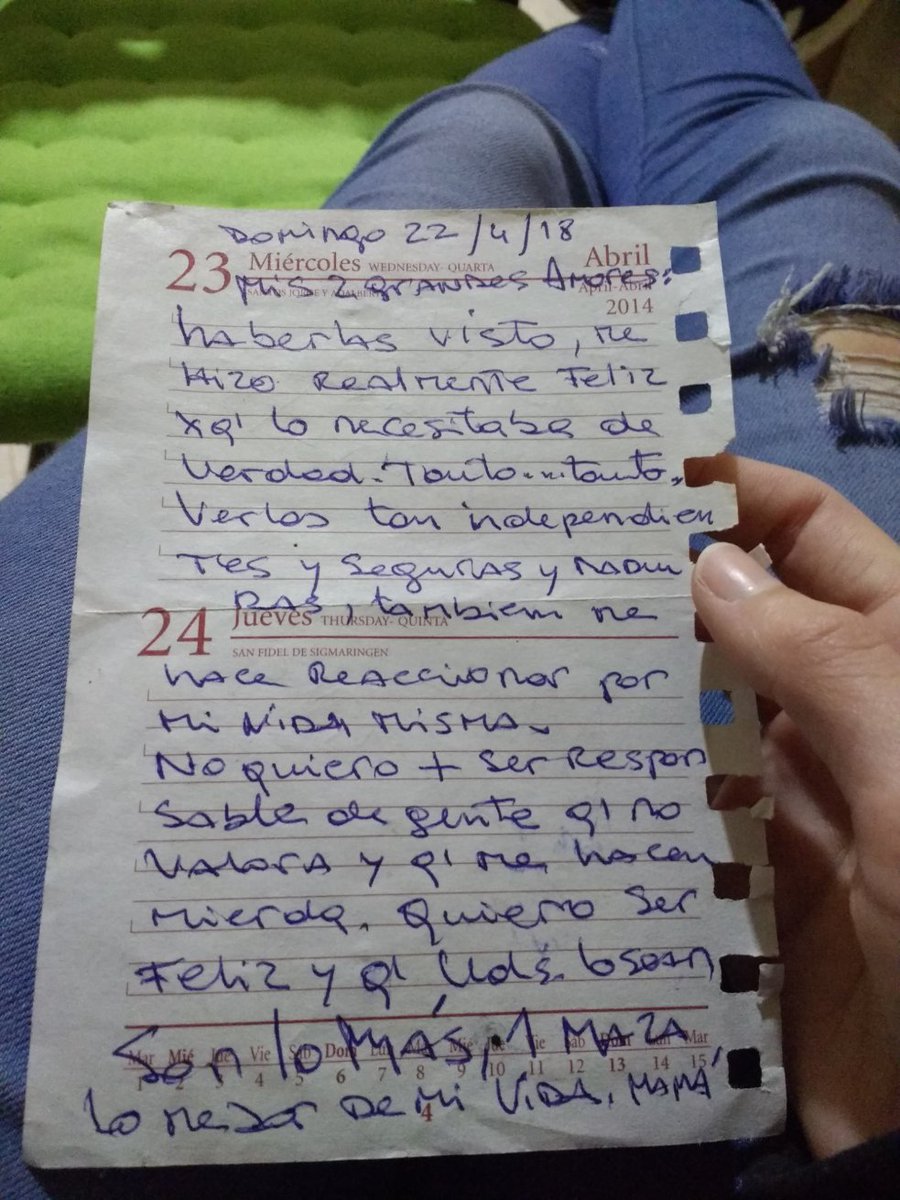 Domingo 22/4/18
23 Miércoles WEDNESDAY- QUARTA Abril
Mis 2 grandes Amores:
April-Abril
2014
haberlas visto, me
Hizo Realmente Feliz
xq' lo necesitaba de
Verdad. Tanto....tanto.
Verlas tan independien
Tes y Seguras y madu
RAS, tambiem me
24 Jueves THURSDAY- QUINTA
SAN FIDEL DE SIGMARINGEN
hace Reaccionar por
mi VIDA misma.
No quiero + ser Respon
sable de gente q' no
Valora y q' me hacen
mierda. Quiero Ser
Feliz y q' Uds. lo sean
Son lo MÁS, 1 MAZA
Mar Mié Jue Vie Sáb Dom Lun Mar Mie Jue Vie Sáb Dom Lun Mar
1 2 3 4 5 6 7 8 9 10 11 12 13 14 15
Lo mejor De mi VIDA, MAMÁ
4